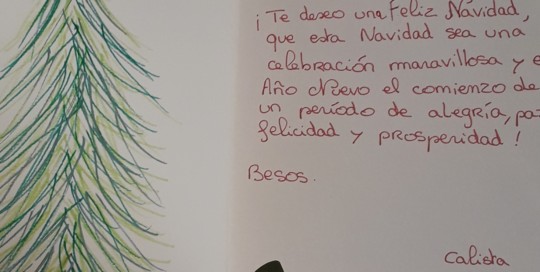 ¡Te deseo una Feliz Navidad,
que esta Navidad sea una
celebración maravillosa y e
Año Nuevo el comienzo de
un período de alegría, pa
felicidad y prosperidad!
Besos.
Calista